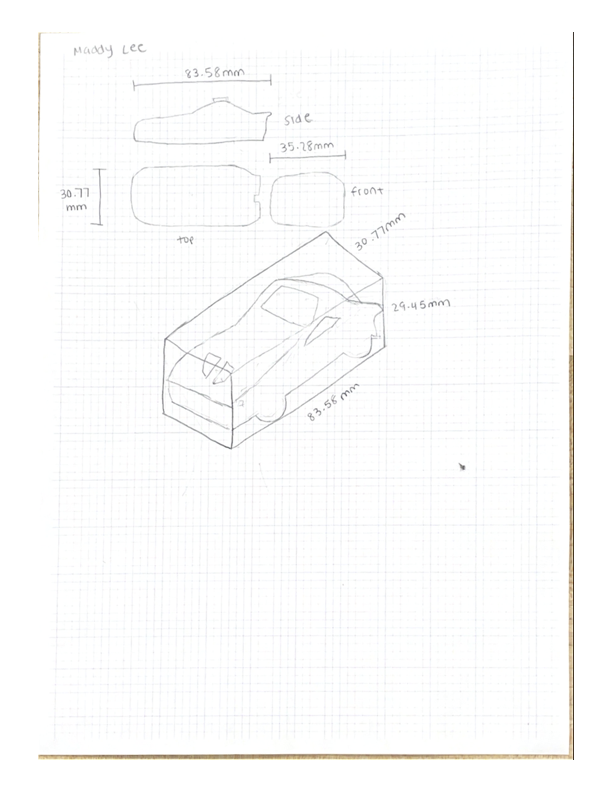 Maddy Lee
83.58mm
side
35.28mm
30.77
mm
front
top
30.77mm
29.45mm
83.58 mm